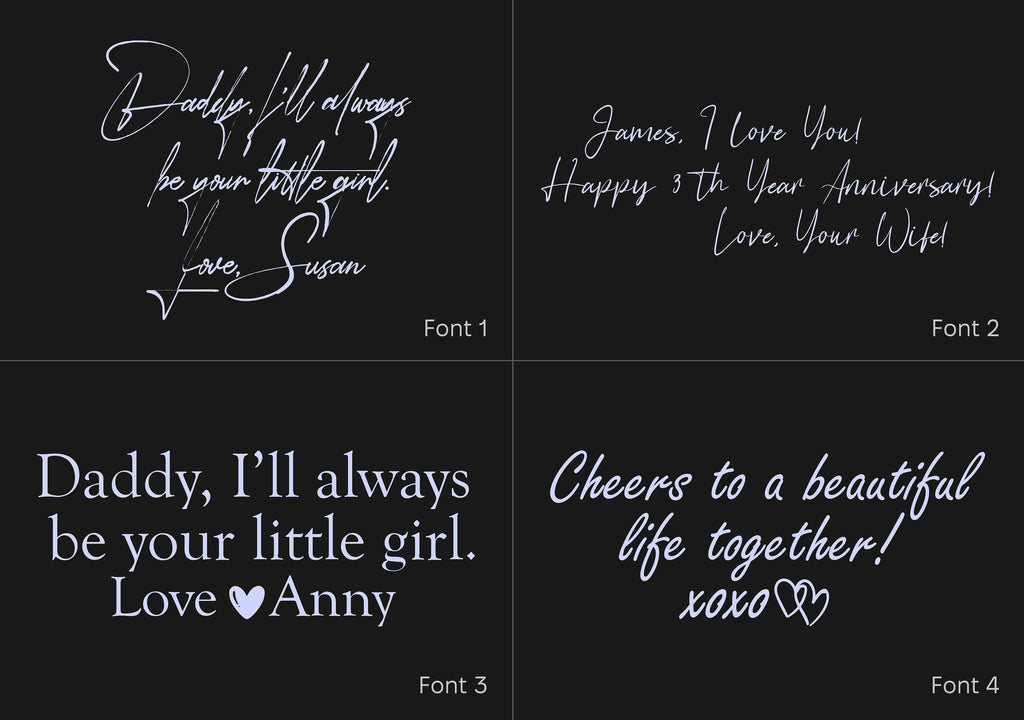 Daddy, I'll always
be your little girl.
Love, Susan
Font 1
James, I Love You!
Happy 3 Th Year Anniversary!
Love, Your Wife!
Font 2
Daddy, I'll always
be your little girl.
Love Anny
Font 3
Cheers to a beautiful
life together!
xoxo
Font 4